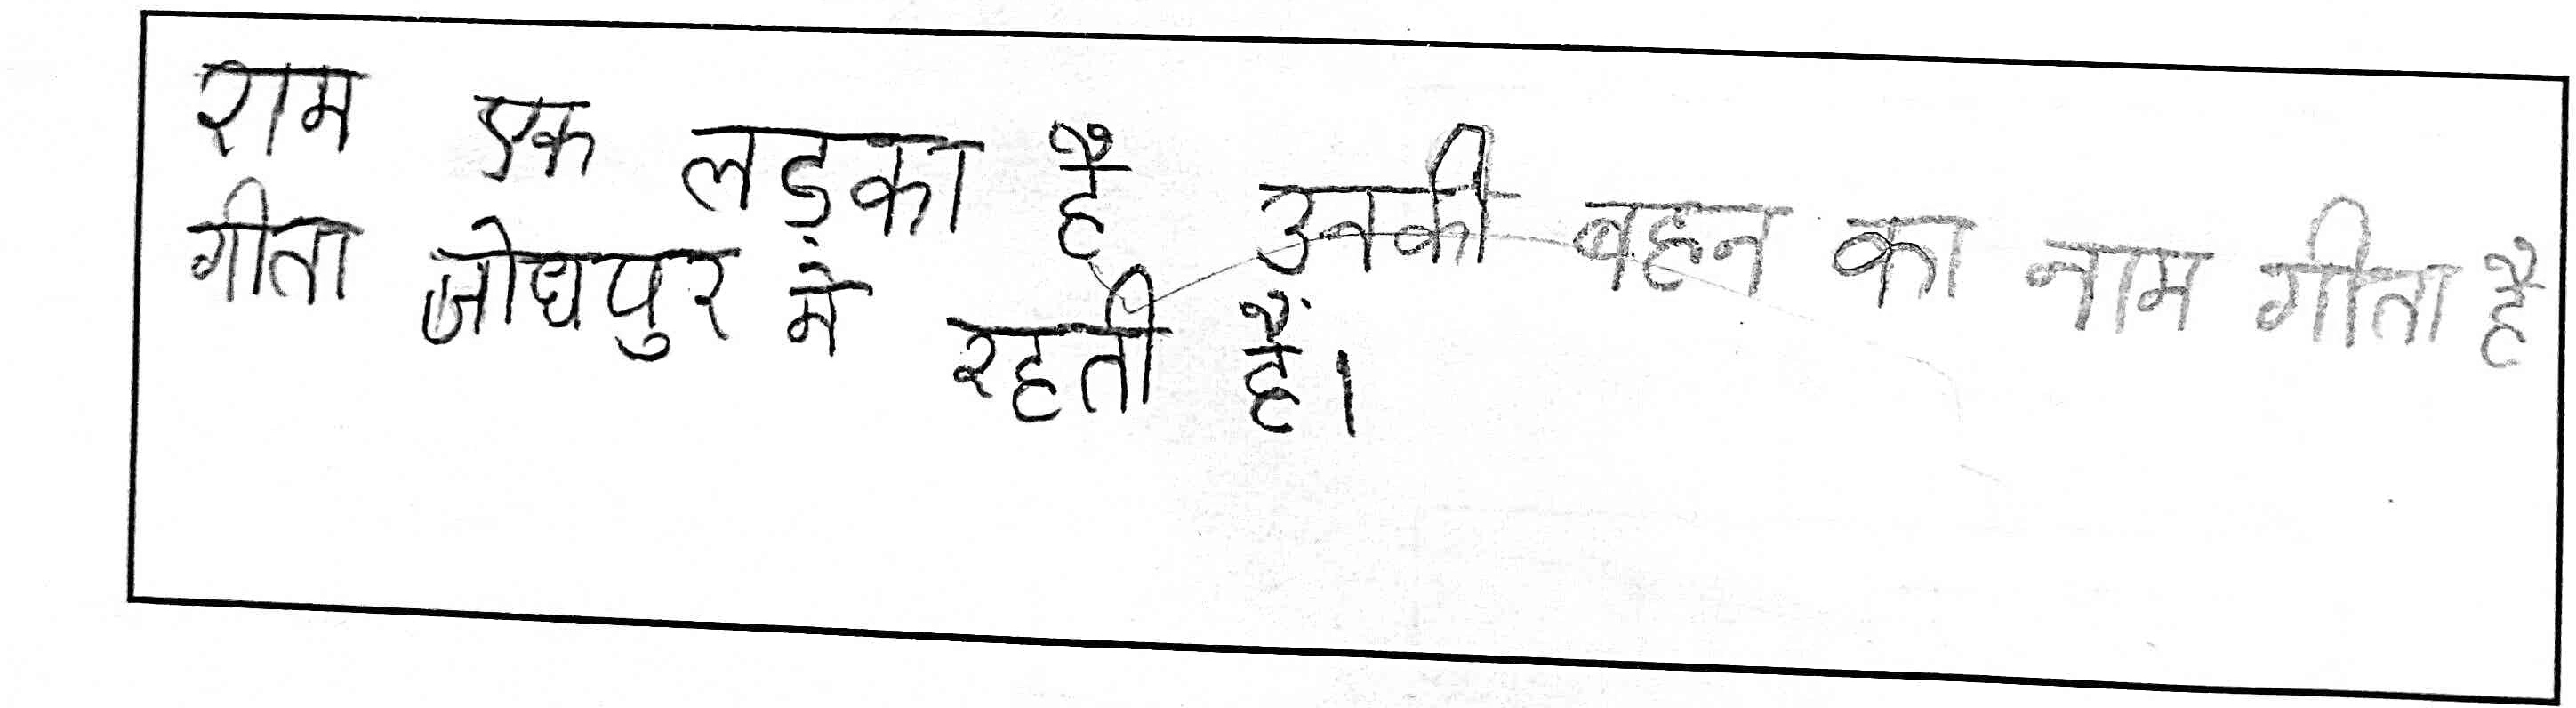 राम एक लड़का है उनकी बहन का नाम गीता है
गीता जोधपुर में रहती हैं।